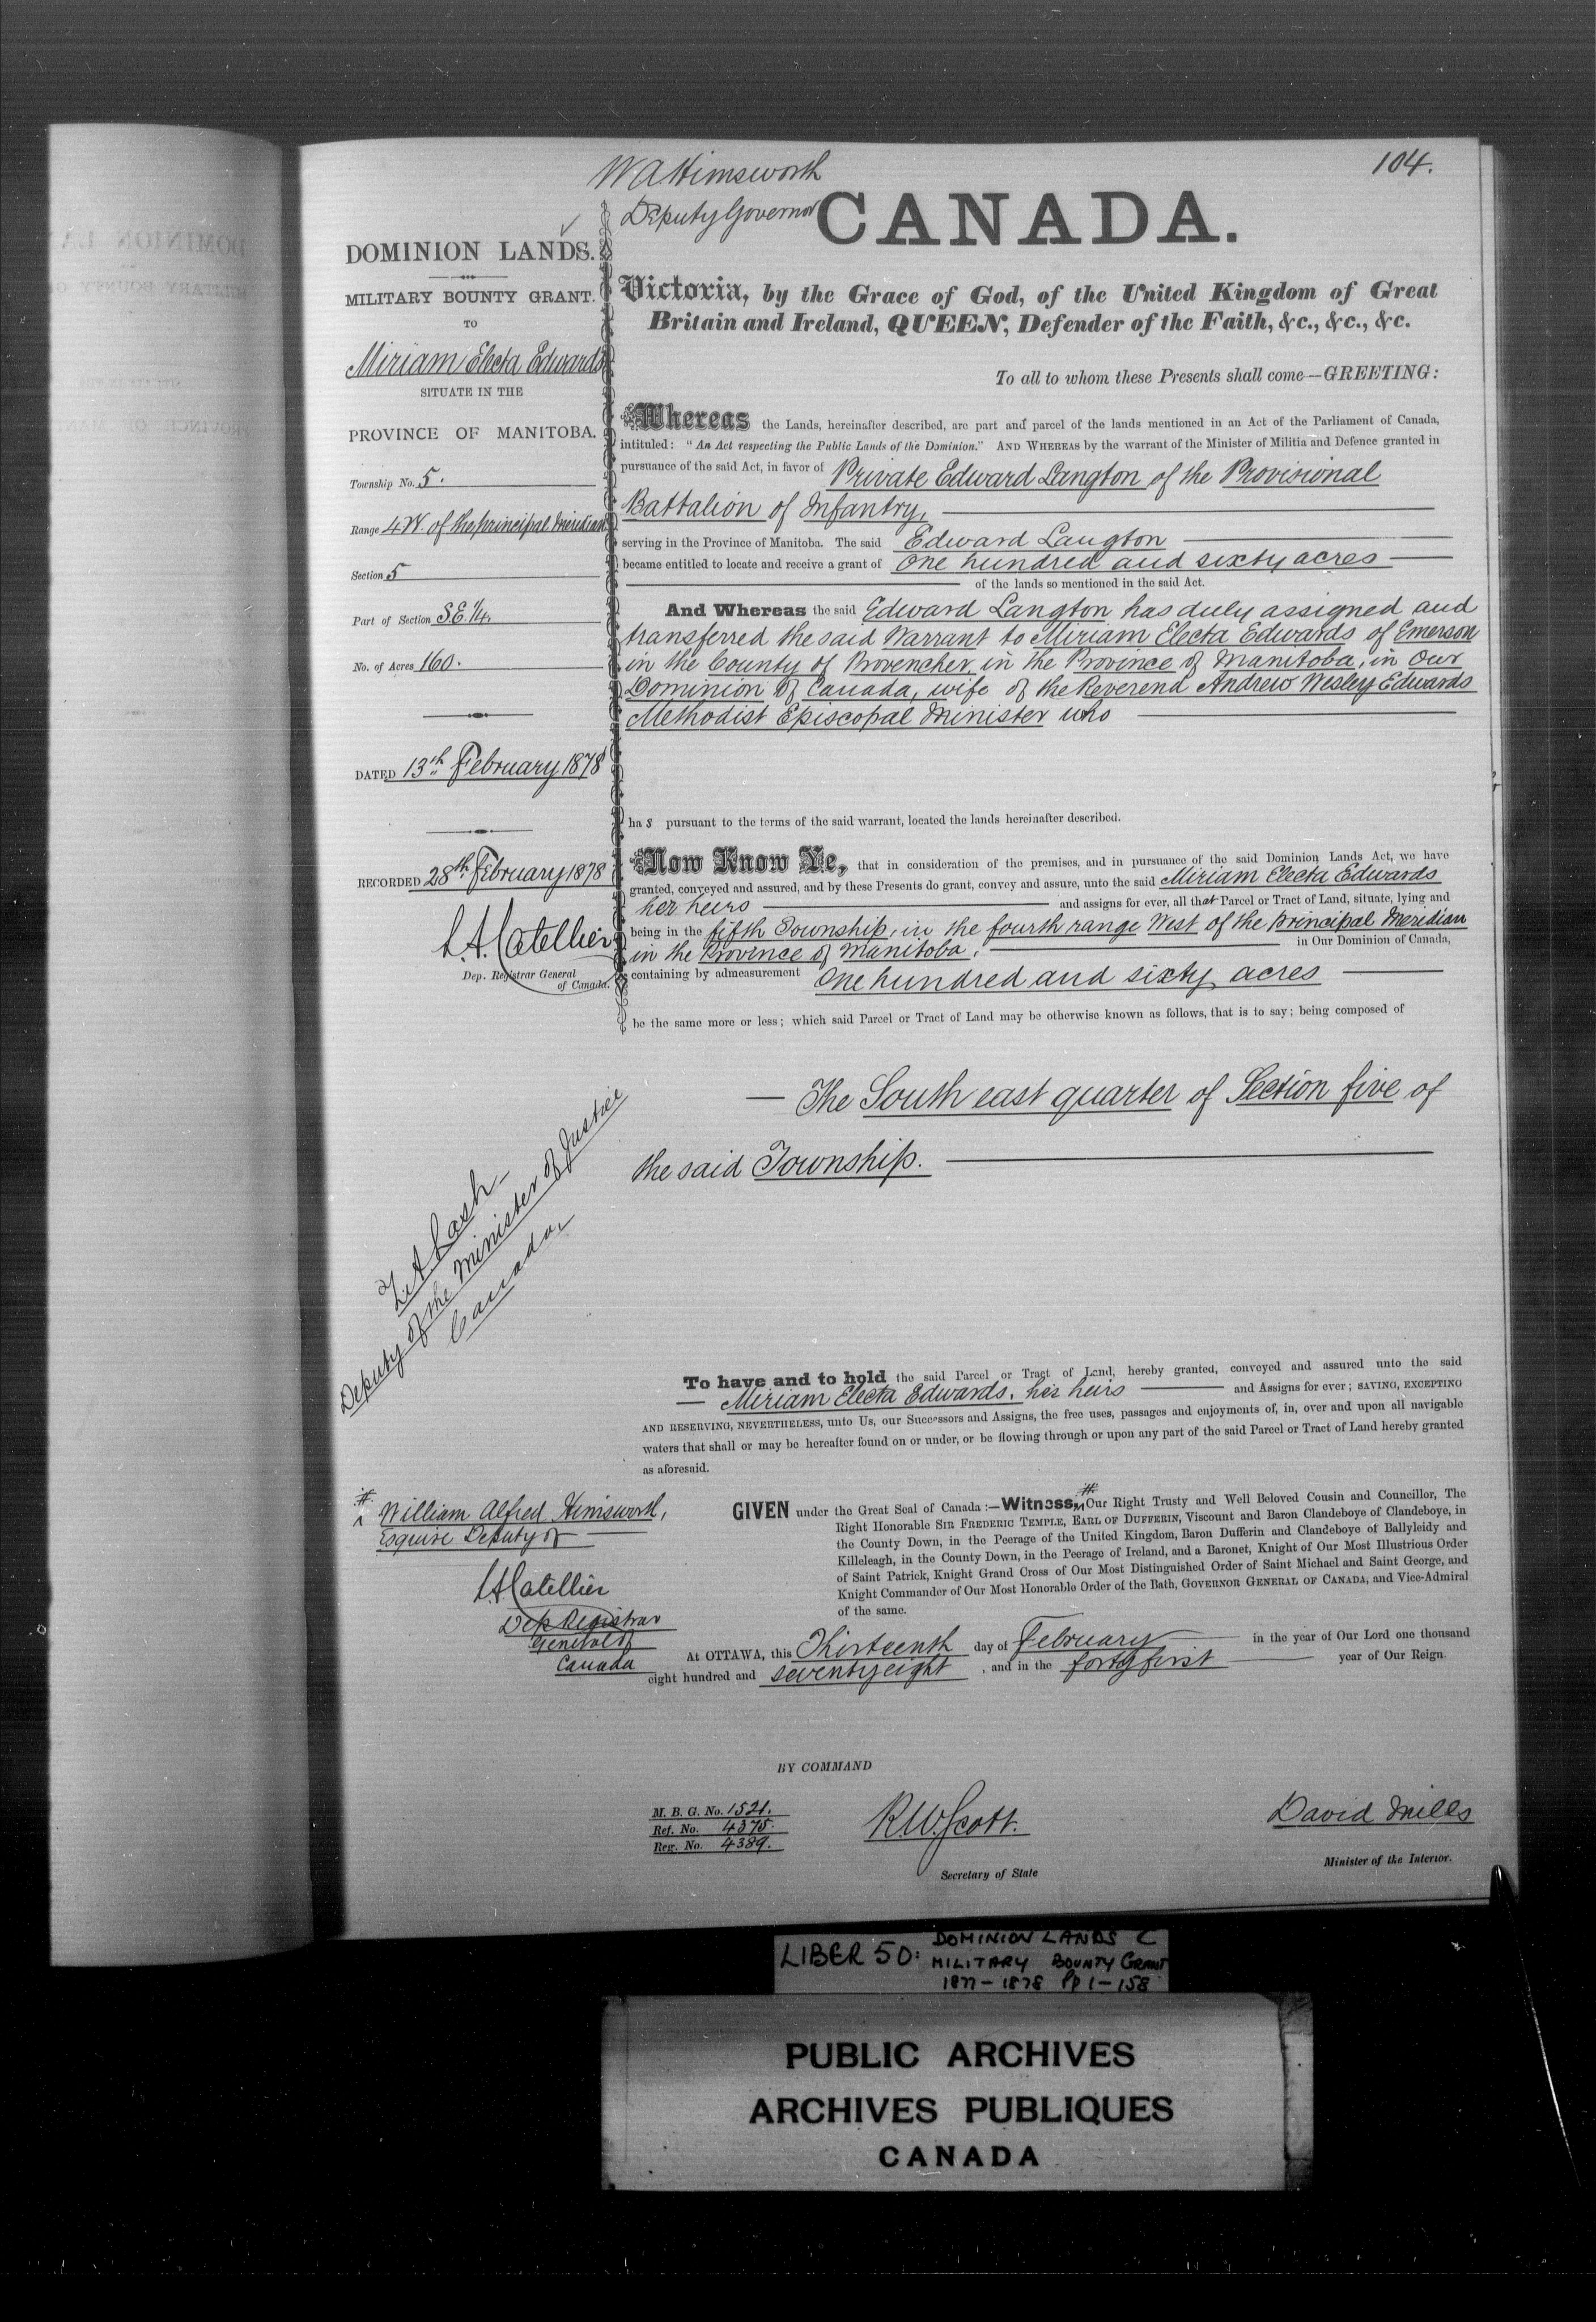 104.
W A Himsworth
Deputy Governor
CANADA.
DOMINION LANDS.
MILITARY BOUNTY GRANT.
TO
Miriam Electa Edwards
SITUATE IN THE
PROVINCE OF MANITOBA.
Township No. 5.
Range 4 W. of the principal Meridian
Section 5
Part of Section S.E. 1/4.
No. of Acres 160.
DATED 13th February 1878
RECORDED 28th February 1878
L.A. Catellier
Dep. Registrar General
of Canada.
Victoria, by the Grace of God, of the United Kingdom of Great
Britain and Ireland, QUEEN, Defender of the Faith, &c., &c., &c.
To all to whom these Presents shall come—GREETING:
Whereas the Lands, hereinafter described, are part and parcel of the lands mentioned in an Act of the Parliament of Canada,
intituled: "An Act respecting the Public Lands of the Dominion." AND WHEREAS by the warrant of the Minister of Militia and Defence granted in
pursuance of the said Act, in favor of Private Edward Langton of the Provisional
Battalion of Infantry,
serving in the Province of Manitoba. The said Edward Langton
became entitled to locate and receive a grant of One hundred and sixty acres
of the lands so mentioned in the said Act.
And Whereas the said Edward Langton has duly assigned and
transferred the said Warrant to Miriam Electa Edwards of Emerson
in the County of Provencher, in the Province of Manitoba, in Our
Dominion of Canada, wife of the Reverend Andrew Wesley Edwards
Methodist Episcopal Minister who
has pursuant to the terms of the said warrant, located the lands hereinafter described.
Now Know Ye, that in consideration of the premises, and in pursuance of the said Dominion Lands Act, we have
granted, conveyed and assured, and by these Presents do grant, convey and assure, unto the said Miriam Electa Edwards
her heirs and assigns for ever, all that Parcel or Tract of Land, situate, lying and
being in the fifth Township, in the fourth range West of the principal Meridian
in the Province of Manitoba, in Our Dominion of Canada,
containing by admeasurement One hundred and sixty acres
be the same more or less; which said Parcel or Tract of Land may be otherwise known as follows, that is to say; being composed of
— The South east quarter of Section five of
the said Township.
Z A Lash
Deputy of the Minister of Justice
Canada,
To have and to hold the said Parcel or Tract of Land, hereby granted, conveyed and assured unto the said
— Miriam Electa Edwards, her heirs and Assigns for ever; SAVING, EXCEPTING
AND RESERVING, NEVERTHELESS, unto Us, our Successors and Assigns, the free uses, passages and enjoyments of, in, over and upon all navigable
waters that shall or may be hereafter found on or under, or be flowing through or upon any part of the said Parcel or Tract of Land hereby granted
as aforesaid.
# William Alfred Himsworth,
Esquire Deputy of
L.A. Catellier
Dep Registrar
General of
Canada
GIVEN under the Great Seal of Canada:—Witness, # Our Right Trusty and Well Beloved Cousin and Councillor, The
Right Honorable SIR FREDERIC TEMPLE, EARL OF DUFFERIN, Viscount and Baron Clandeboye of Clandeboye, in
the County Down, in the Peerage of the United Kingdom, Baron Dufferin and Clandeboye of Ballyleidy and
Killeleagh, in the County Down, in the Peerage of Ireland, and a Baronet, Knight of Our Most Illustrious Order
of Saint Patrick, Knight Grand Cross of Our Most Distinguished Order of Saint Michael and Saint George, and
Knight Commander of Our Most Honorable Order of the Bath, GOVERNOR GENERAL OF CANADA, and Vice-Admiral
of the same.
At OTTAWA, this Thirteenth day of February in the year of Our Lord one thousand
eight hundred and seventy eight, and in the forty first year of Our Reign.
BY COMMAND
M. B. G. No. 1521.
Ref. No. 4375.
Reg. No. 4389.
R.W. Scott.
Secretary of State
David Mills
Minister of the Interior.
LIBER 50: DOMINION LANDS C
MILITARY BOUNTY GRANT
1877–1878 Pp 1–158
PUBLIC ARCHIVES
ARCHIVES PUBLIQUES
CANADA